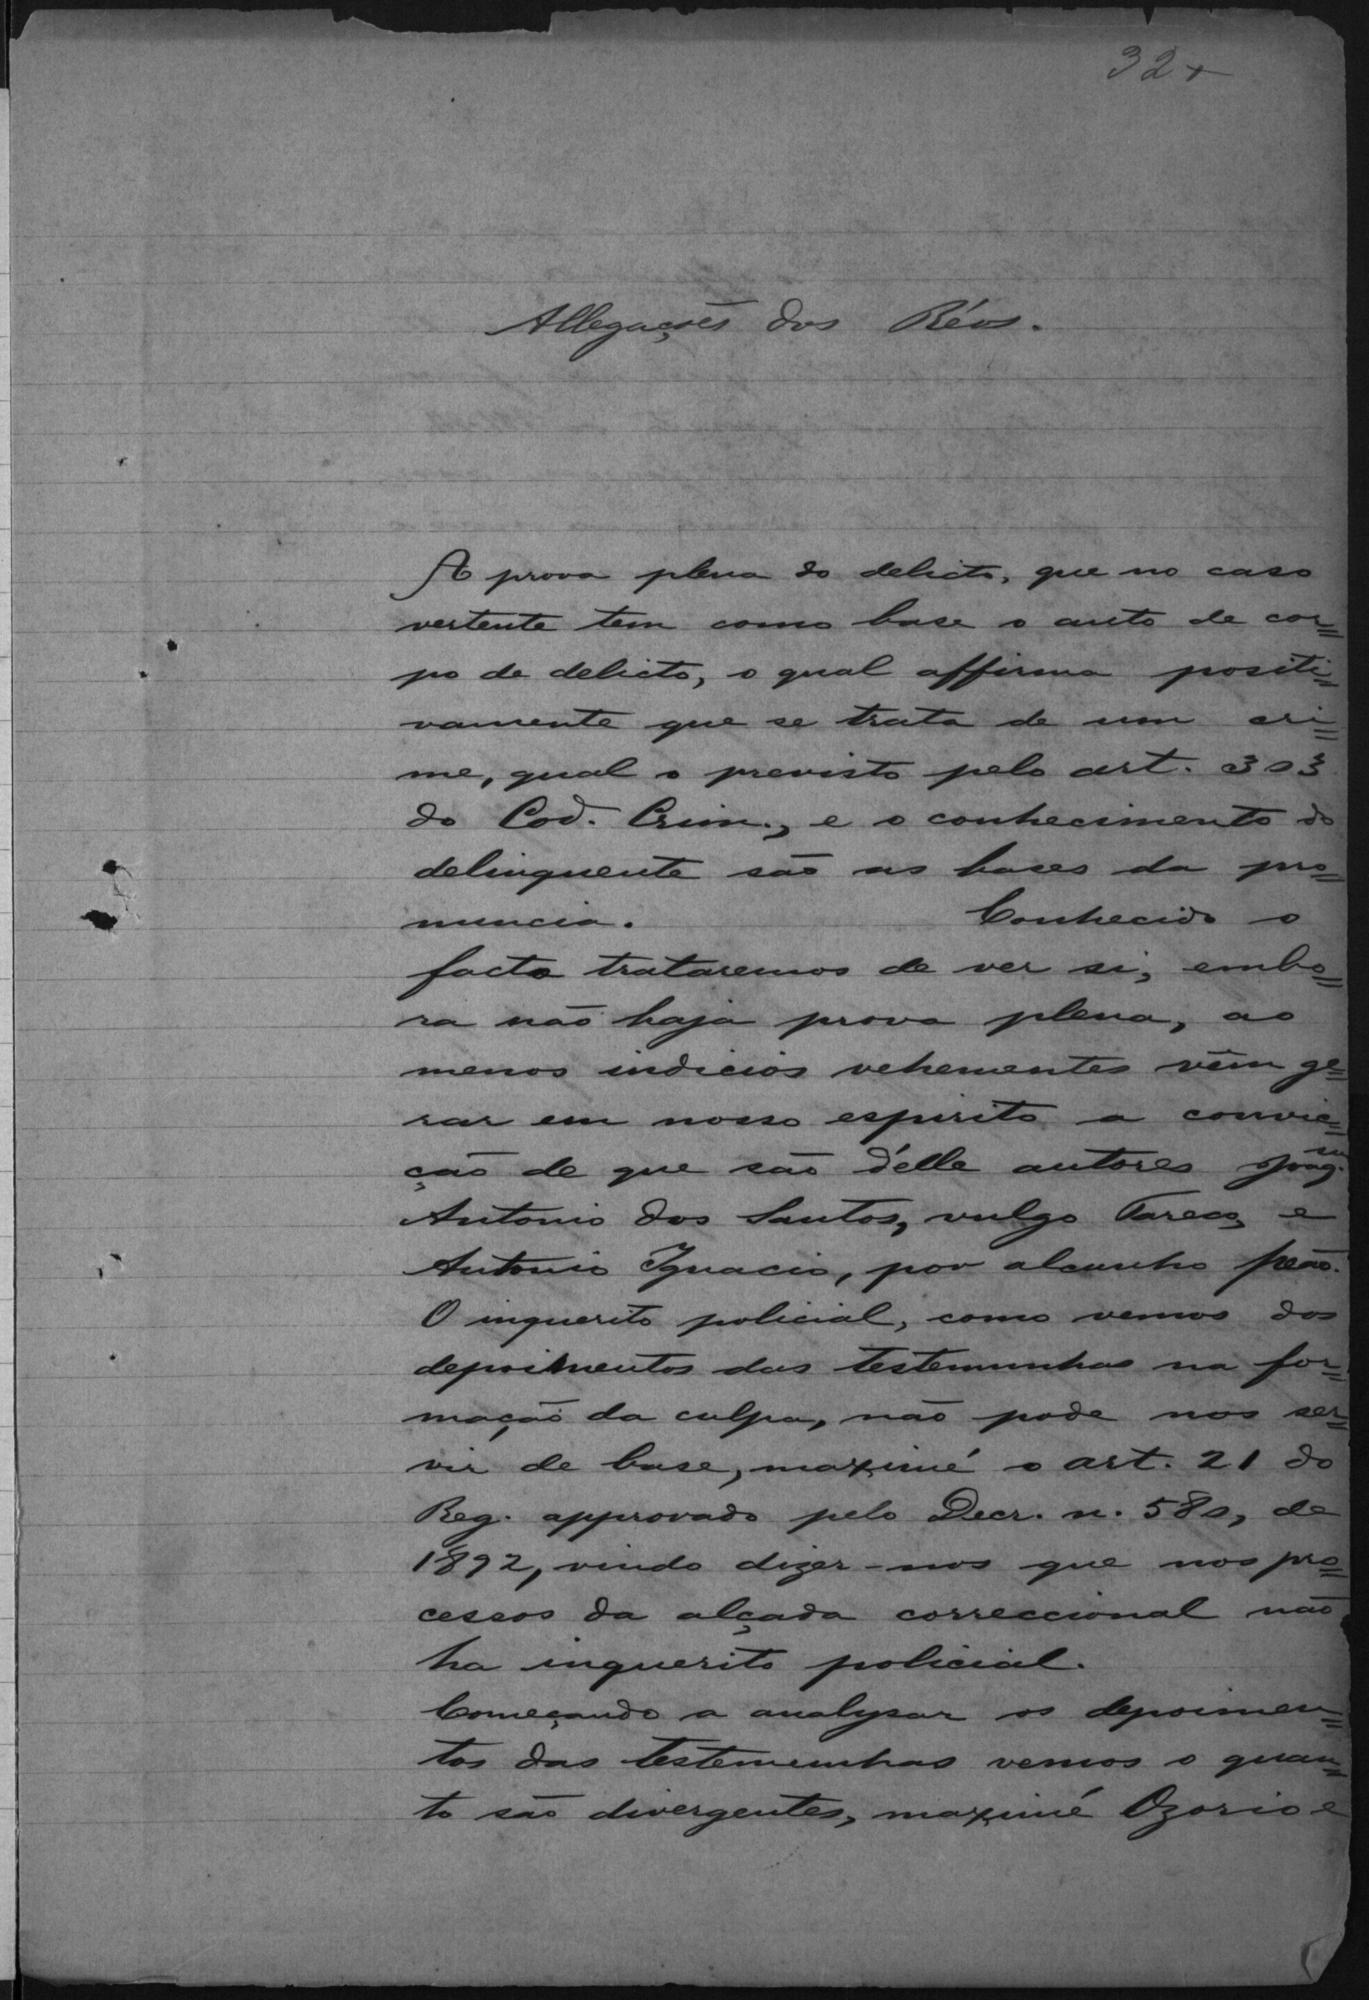 32
Allegações dos Réos.
A prova plena do delicto, que no caso
vertente tem como base o auto de cor=
po de delicto, o qual affirma positi=
vamente que se trata de um cri=
me, qual o previsto pelo art. 303
do Cod. Crim., e o conhecimento do
delinquente são as bases da pro=
nuncia. Conhecido o
facto trataremos de ver si, embo=
ra não haja prova plena, ao
menos indicios vehementes vêm ge=
rar em nosso espirito a convic=
ção de que são d'elle autores Joaqm.
Antonio dos Santos, vulgo Tareco, e
Antonio Ignacio, por alcunho Peão.
O inquerito policial, como vemos dos
depoimentos das testemunhas na for=
mação da culpa, não pode nos ser=
vir de base, maximé o art. 21 do
Reg. approvado pelo Decr. n. 580, de
1892, vindo dizer-nos que nos pro=
cessos da alçada correccional não
ha inquerito policial.
Começando a analysar os depoimen=
tos das testemunhas vemos o quan=
to são divergentes, maximé Ozorio e